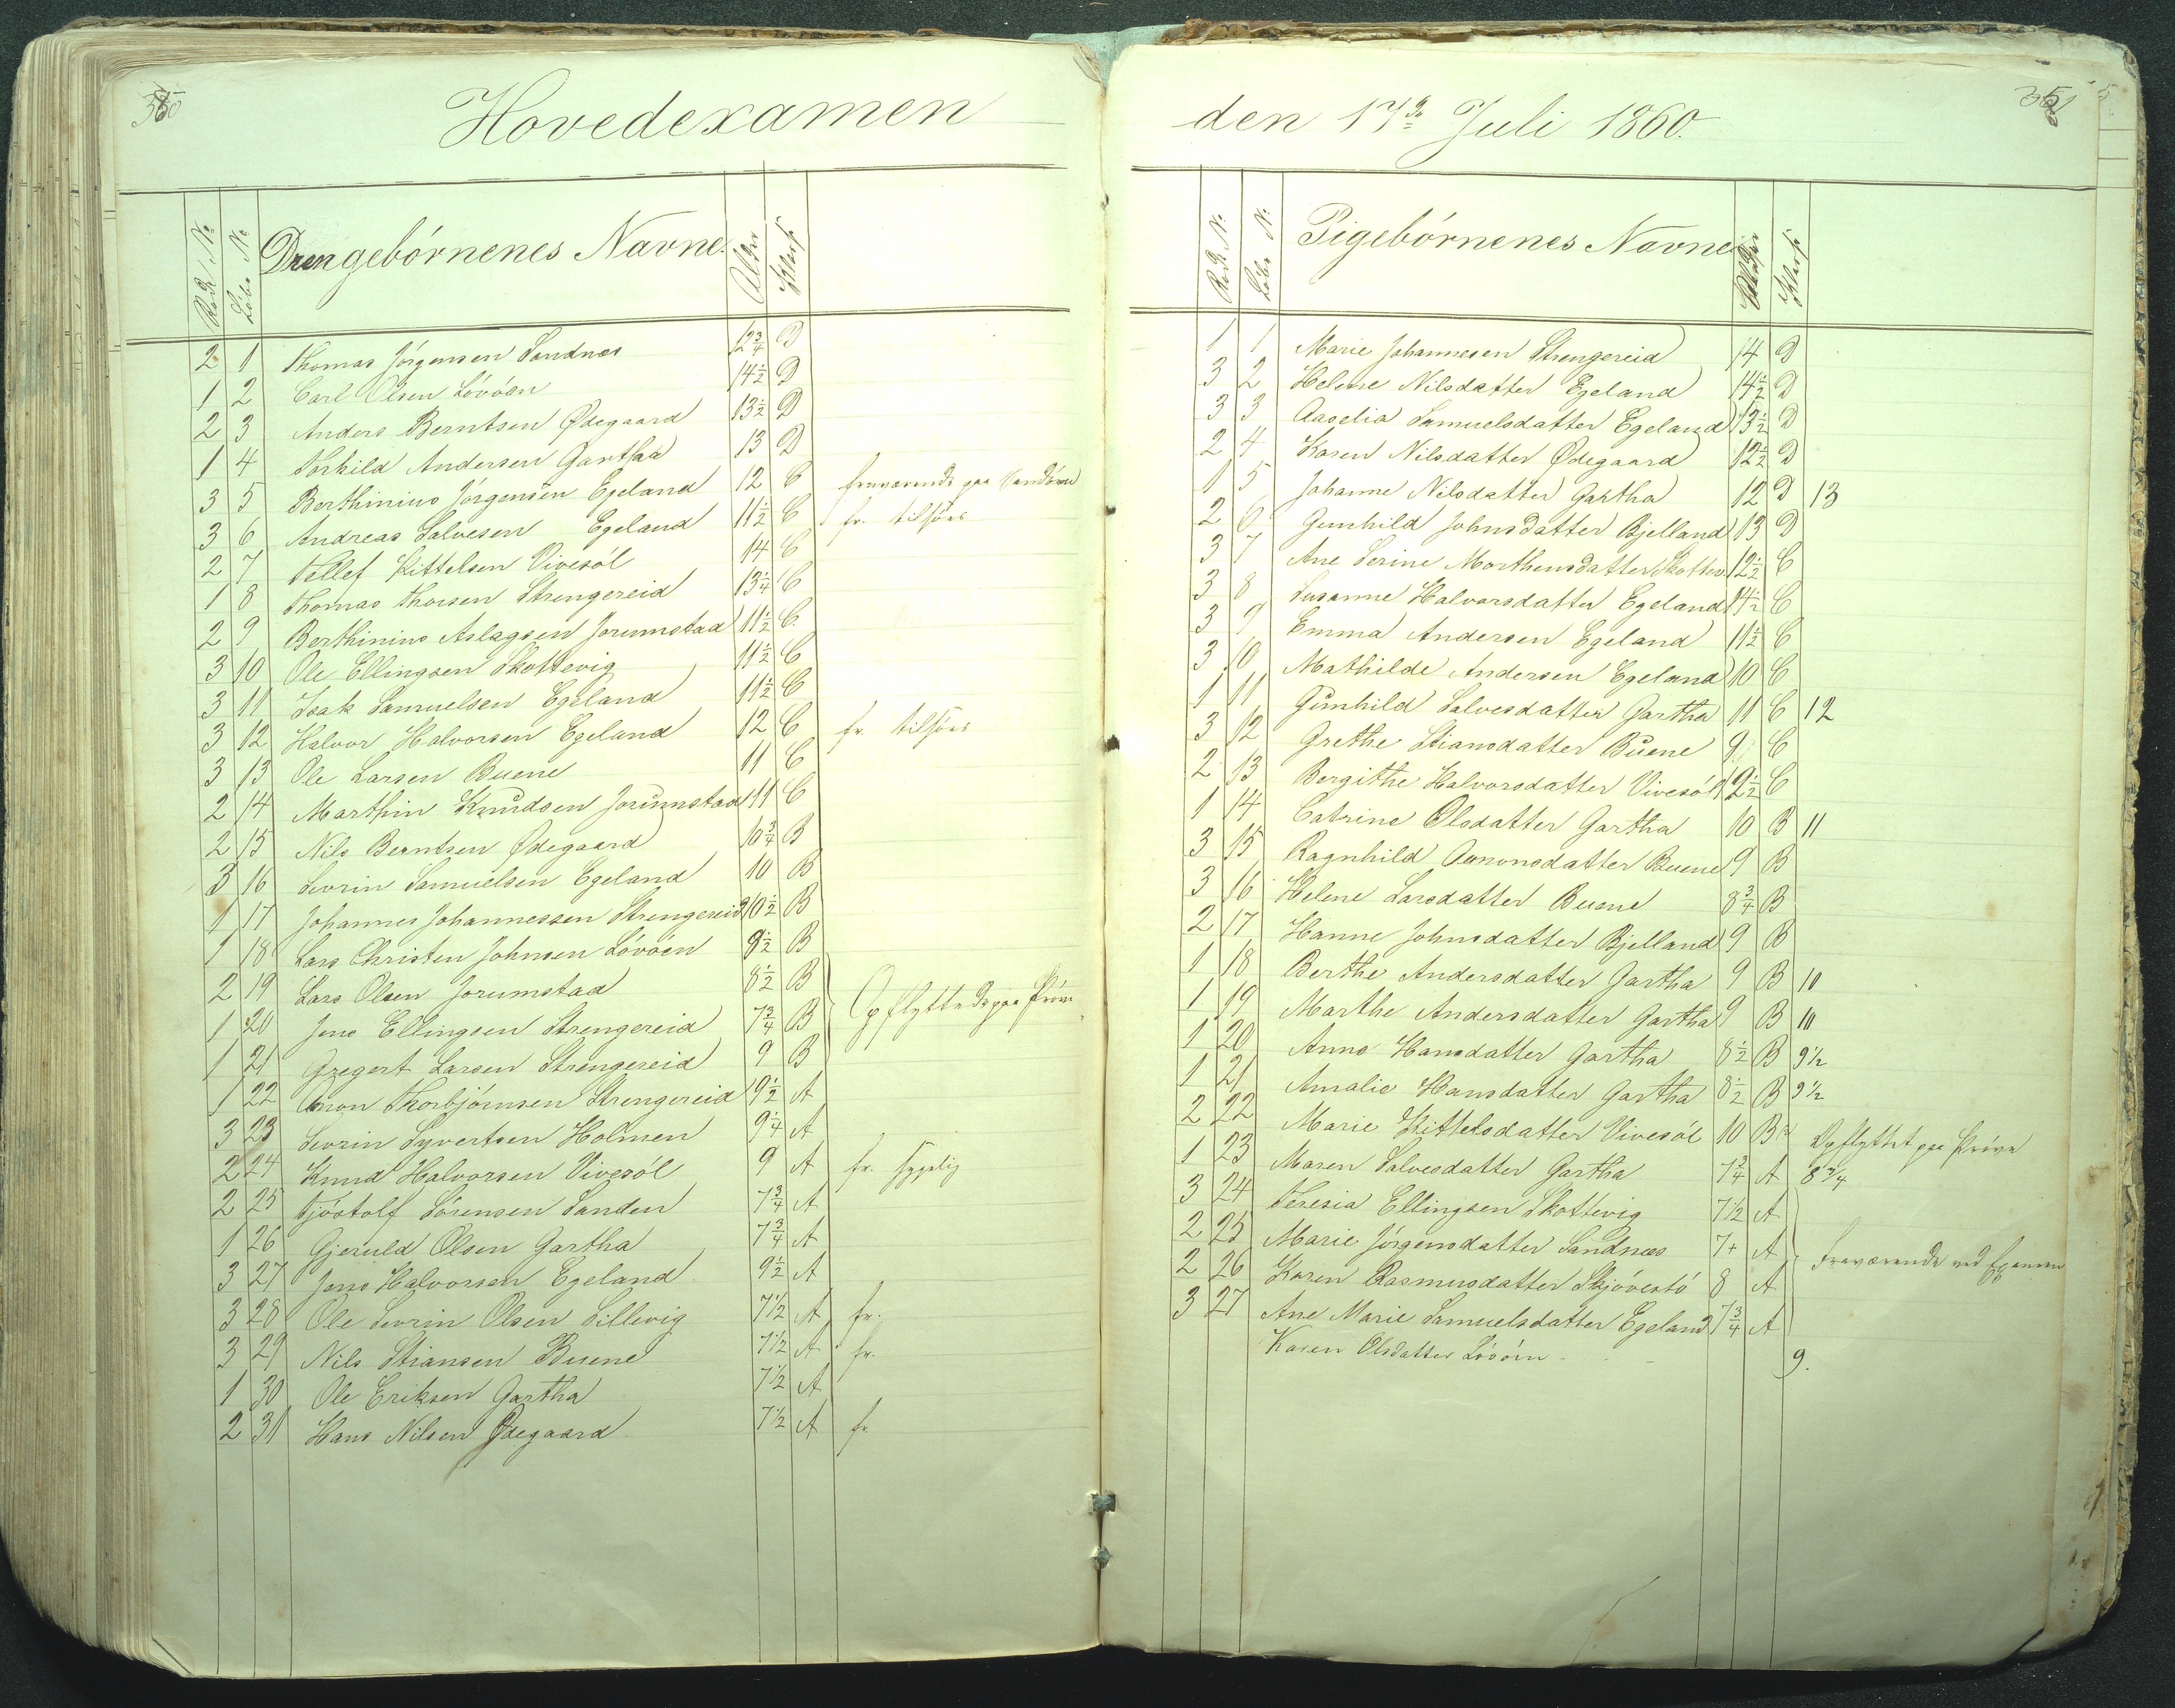 350
Hovedexamen
Rode No Löbe No Drengebörnenes Navne. Alder Klasse
2 1 Thomas Jörgensen Sandnes 12 3/4 D
1 2 Carl Olsen Lövöen 14 1/2 D
2 3 Anders Berntsen Ødegaard 13 1/2 D
1 4 Torhild Andersen Gartha 13 D
3 5 Berthinius Jörgensen Egeland 12 C fraværende paa
3 6 Andreas Salvesen Egeland 11 1/2 C fr. tilsöes
2 7 Tellef Kittelsen Vivesöl 14 C
1 8 Thomas Thorsen Strengereid 13 1/4 C
2 9 Berthinius Aslagsen Jorumstad 11 1/2 C
3 10 Ole Ellingsen Skottevig 11 1/2 C
3 11 Isak Samuelsen Egeland 11 1/2 C
3 12 Halvor Halvorsen Egeland 12 C fr. tilsöes
3 13 Ole Larsen Buene 11 C
2 14 Marthin Knudsen Jorumstad 11 C
2 15 Nils Berntsen Ødegaard 10 3/4 B
3 16 Sevrin Samuelsen Egeland 10 B
1 17 Johannes Johannessen Strengereid 10 1/2 B
1 18 Lars Christen Johnsen Lövöen 9 1/2 B
2 19 Lars Olsen Jorumstad 8 1/2 B
1 20 Jens Ellingsen Strengereid 7 3/4 B Opflyttede paa Pröve
1 21 Gregert Larsen Strengereid 9 B
1 22 Omon Thorbjörnsen Strengereid 9 1/2 A
3 23 Sevrin Syvertsen Holmen 9 1/4 A
2 24 Knud Halvorsen Vivesöl 9 A fr. sygelig
2 25 Tjöstolf Sörensen Sanden 7 3/4 A
1 26 Gjeruld Olsen Gartha 7 3/4 A
3 27 Jens Halvorsen Egeland 9 1/2 A
3 28 Ole Sevrin Olsen Sillevig 7 1/2 A fr.
3 29 Nils Stiansen Buene 7 1/2 A fr.
1 30 Ole Eriksen Gartha 7 1/2 A
2 31 Hans Nilsen Ødegaard 7 1/2 A fr
351
den 17de Juli 1860.
Rode No Löbe No Pigebörnenes Navne Alder Klasse
1 1 Marie Johannesen Strengereid 14 D
3 2 Helene Nilsdatter Egeland 14 1/2 D
3 3 Aaselia Samuelsdatter Egeland 13 1/2 D
2 4 Karen Nilsdatter Ødegaard 12 1/2 D
1 5 Johanne Nilsdatter Gartha 12 D 13
2 6 Gunhild Johnsdatter Bjelland 13 D
3 7 Ane Serine Morthensdatter Skottev. 12 1/2 C
3 8 Susanne Halvorsdatter Egeland 11 1/2 C
3 9 Emma Andersen Egeland 11 1/2 C
3 10 Mathilde Andersen Egeland 10 C
1 11 Gunhild Salvesdatter Gartha 11 C 12
3 12 Grethe Stiansdatter Buene 9 C
2 13 Bergithe Halvorsdatter Vivesöl 12 1/2 C
1 14 Catrine Olsdatter Gartha 10 B 11
3 15 Ragnhild Omonsdatter Buene 9 B
3 16 Helene Larsdatter Buene 8 3/4 B
2 17 Hanne Johnsdatter Bjelland 9 B
1 18 Berthe Andersdatter Gartha 9 B 10
1 19 Marthe Andersdatter Gartha 9 B 10
1 20 Anne Hansdatter Gartha 8 1/2 B 9 1/2
1 21 Amalie Hansdatter Gartha 8 1/2 B 9 1/2
2 22 Marie Kittelsdatter Vivesöl 10 B Opflyttet paa Pröve
1 23 Maren Salvesdatter Gartha 7 3/4 A 8 3/4
3 24 Teresia Ellingsen Skottevig 7 1/2 A
2 25 Marie Jörgensdatter Sandnæs 7+ A
2 26 Karen Rasmusdatter Skjövestö 8 A fraværende ved Examen
3 27 Ane Marie Samuelsdatter Egeland 7 3/4 A
Karen Olsdatter Lövöen - - - 9.